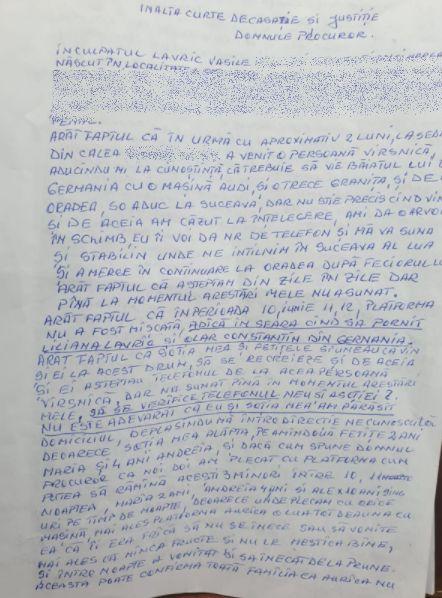 INALTA CURTE DE CASAȚIE ȘI JUSTIȚIE
DOMNULE PROCUROR.
INCULPATUL LAVRIC VASILE
NĂSCUT ÎN LOCALITATEA
PENAL.
ARĂT FAPTUL CĂ ÎN URMĂ CU APROXIMATIV 2 LUNI, LA SEDI
DIN CALEA A VENIT O PERSOANĂ VÎRSNICĂ,
ADUCÎNDU MI LA CUNOȘTINȚĂ CĂ TREBUIE SĂ VIE BĂIATUL LUI D
GERMANIA CU O MAȘINĂ AUDI, ȘI O TRECE GRANIȚA, ȘI DE L
ORADEA, SO ADUC LA SUCEAVA, DAR NU ȘTIE PRECIS CÎND VIN
ȘI DE ACEIA AM CĂZUT LA ÎNȚELEGERE, AMI DA O ARVO
ÎN SCHIMB EU ÎI VOI DA NR DE TELEFON ȘI MĂ VA SUNA
ȘI STABILIM UNDE NE ÎNTÎLNIM ÎN SUCEAVA AL LUA
ȘI A MERGE ÎN CONTINUARE LA ORADEA DUPĂ FECIORUL LU
ARĂT FAPTUL CĂ AȘTEPTAM DIN ZILE ÎN ZILE DAR
PÎNĂ LA MOMENTUL ARESTĂRI MELE NU A SUNAT.
ARĂT FAPTUL CĂ ÎN PERIOADA 10, IUNIE 11, 12, PLATFORMA
NU A FOST MIȘCATĂ, ADICĂ ÎN SEARA CÎND SĂ PORNIT
LILIANA LAVRIC ȘI OLAR CONSTANTIN DIN GERMANIA.
ARĂT FAPTUL CĂ SOȚIA MEA ȘI FETIȚELE SPUNEAU CĂ VIN
ȘI EI LA ACEST DRUM, SĂ SE RECREIEZE ȘI DE ACEIA
ȘI EI AȘTEPTAU TELEFONUL DE LA ACEA PERSOANĂ
VÎRSNICĂ, DAR NU SUNAT PÎNĂ ÎN MOMENTUL ARESTĂRI
MELE, SĂ SE VERIFICE TELEFONUL MEU ȘI A SOȚIEI.
NU ESTE ADEVĂRAT CĂ EU ȘI SOȚIA MEA AM PĂRĂSIT
DOMICILIUL, DEPLASÎNDU MĂ ÎNTRO DIRECȚIE NECUNOSCUTĂ
DEOARECE SOȚIA MEA ALĂPTA, PE AMÎNDOUĂ FETIȚE 2 ANI
MARIA ȘI 4 ANI ANDREIA, ȘI DACĂ CUM SPUNE DOMNUL
PROCUROR CĂ NOI DOI AM PLECAT CU PLATFORMA CUM
PUTEA SĂ RĂMÎNĂ ACEȘTI 3 MINORI ÎNTRE 10,
NOAPTEA, MARIA 2 ANI, ANDREIA 4 ANI ȘI ALEX 10 ANI
URI PE TIMP DE NOAPTE, DEOARECE UNDE PLECAM CU ORICE
MAȘINĂ MAI ALES PLATFORMA AURICA O LUA TOT DEAUNA CU
EA CĂ ÎI ERA FRICĂ SĂ NU SE ÎNECE SAU SĂ VOMITE
MAI ALES CĂ MÎNCA FRUCTE ȘI NU LE MESTICA BINE,
ȘI ÎNTRO NOAPTE A VOMITAT ȘI SA ÎNECAT DE LA PRUNE.
ACEASTA POATE CONFIRMA TOATĂ FAMILIA CĂ AURICA NU